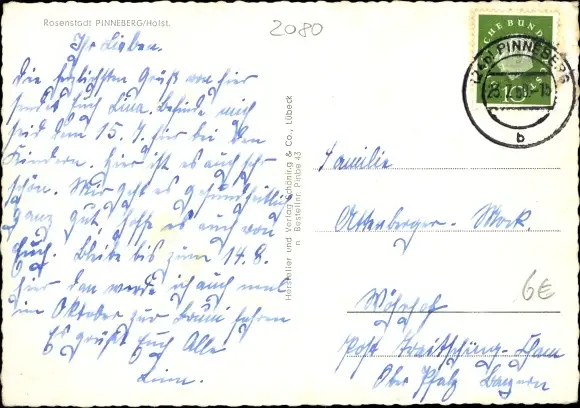 Rosenstadt PINNEBERG/Holst.
2080
Ihr Lieben.
Die herzlichsten Grüße von hier
sendet Euch Lina. Befinde mich
seid dem 15. 7. hier bei den
Kindern. Hier ist es auch sehr
schön. Mir geht es gesundheitlich
ganz gut, hoffe es auch von
Euch. Bleibe bis zum 14. 8.
hier dan werde ich auch mal
im Oktober zur fahren
Es grüßt Euch Alle
Hersteller und Verlag Schöning & Co., Lübeck
Bestellnr. Pinbe 43
CHE BUNDES
10
PINNEBERG
b
Familie
Attenberger - Mock
Wöhrhof
Post Cham
Ober Pfalz Bayern
6€